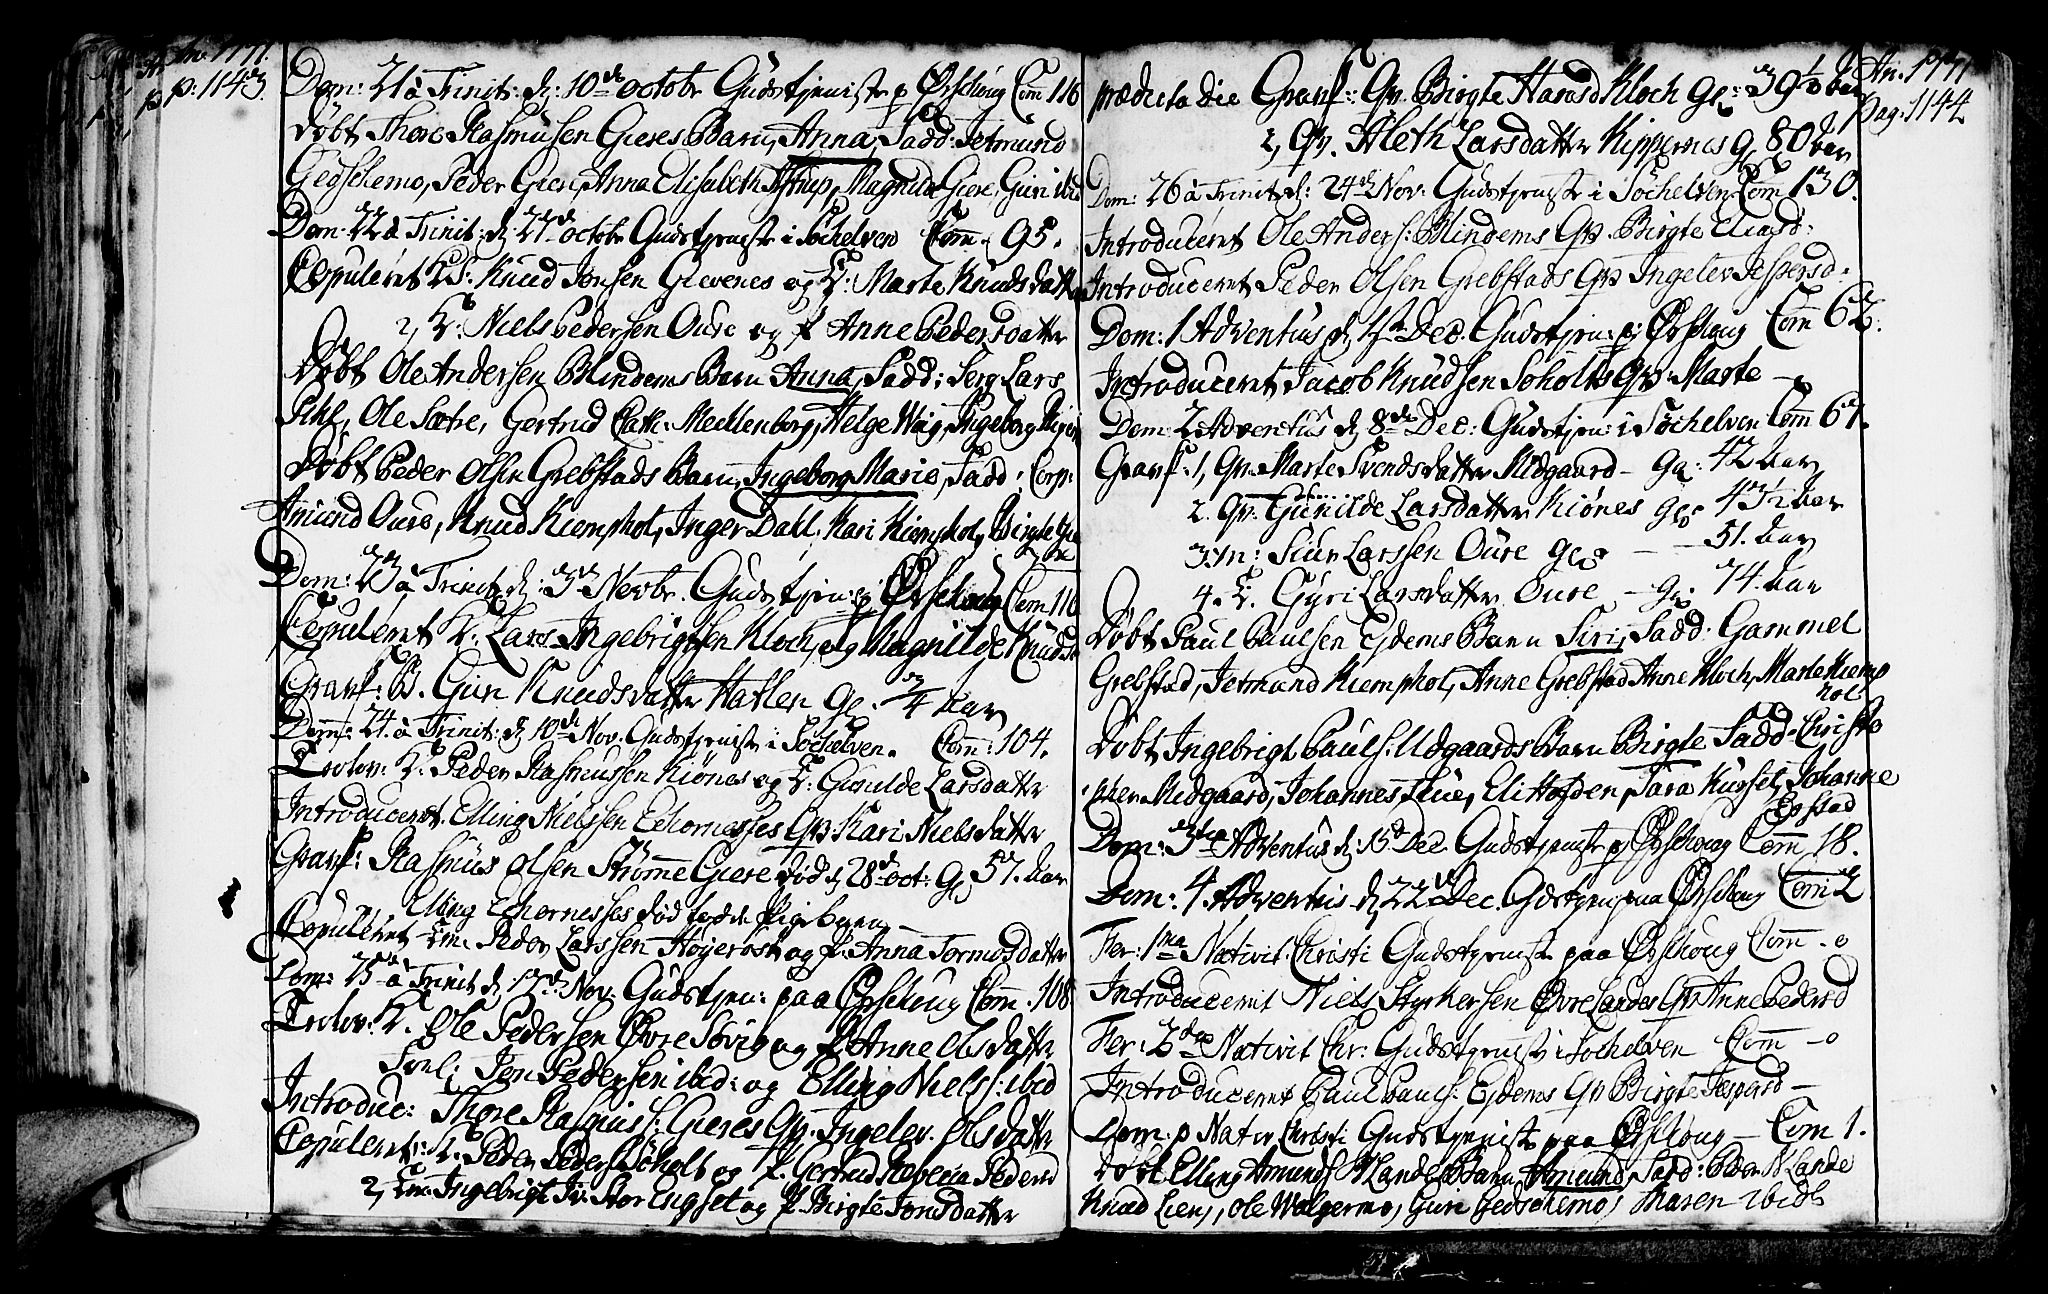 An. 1771.
p. 1143.
Dom: 21 à Trinit: d: 10de octobr Gudstjeniste p Ørschoug Com 116
Døbt Thore Rasmusen Gieres Barn, Anna, Fadd: Jetmund
Gedschemo, Peder Giere, Anna Elisabeth Astrup, Magnilde Giere, Guri ibid
Dom: 22 à Trinit: d: 27de octobr Gudstjenist i Söchelven Com: 95.
Copuleret S: Knud Jonsen Gievenes og E: Marte Knudsdatter
2, E: Niels Pedersen Oure og P Anne Pedersdatter
Døbt Ole Andersen Blindems Barn Anna, Fadd: Serg Lars
Pihl, Ole Sætre, Gertrud Cath: Mecklenborg, Helge Wiig, Ingeborg
Døbt Peder Olsen Grebstads Barn, Ingeborg Marie, Fadd: Corp:
Amund Oure, Knud Kiemphol, Inger Dahl, Kari Kiemphol, Birgte
Dom: 23 à Trinit: d: 3de Novbr. Gudstjen: p Ørschoug Com 116
Copuleret E. Lars Ingebrigtsen Kloch, og Magnilde Knudsd
Gravf: B. Guri Knudsdatter Hatlen gl. 3/4 aar
Dom: 24. à Trinit: d 10de Nov. Gudstjenist i Söchelven. Com: 104.
Trolov: E. Peder Rasmussen Kiönes og E: Gunilde Larsdatter
Introduceret. Elling Nielssen Echornesses Qv: Kari Nielsdatter
Gravf: Rasmus Olsen Strömme Giere død d 28de oct: gl 57. aar
Elling Echornesses død fødde Pigebarn
Copuleret Em. Peder Larssen Höyerost og P. Anna Tormosdatter
Dom: 25 à Trinit d: 17de Nov. Gudstjen: paa Ørschoug Com. 108
Trolov: E. Ole Pedersen Øvre Søvig og P Anne Olsdatter
Forl: Jon Pedersen ibid: og Elling Niels: ibid
Introduc: Thore Rasmuss: Gieres Qv. Ingelev. Olsdatter
Copuleret: E. Peder Peders Söholt og P. Gertrud Rebecca Pedersd
2, Em: Ingebrigt Iv: Stor Engset og P Birgte Jonsdatter
An. 1771
Pag: 1144
prædicta Die Gravf: Qv. Birgte Haraldsd Kloch gl: 39 1/2 aar
2, Qv. Aleth Larsdatter Kippernes gl 80 aar
Dom: 26 à Trinit d: 24de Nov. Gudstjenist i Söchelven Com 130.
Introduceret Ole Anders: Blindems Qv. Birgte Eliasd:
Introduceret Peder Olsen Grebstads Qv Ingelev Jespersd.
Dom: 1 Adventus d 1ste Dec. Gudstjen: p: Ørschoug Com 62.
Introduceret Jacob Knudsen Söholts Qv: Marte
Dom: 2 Adventus d 8de Dec: Gudstjen: i Söchelven Com 67.
Gravf: 1, Qv. Marte Svendsdatter Midgaard – gl: 42 aar
2. Qv. Gunilde Larsdatter Kiönes gl: 43 1/2 aar
3. M: Siur Larssen Oure gl: – 51. aar
4. E. Gyri Larsdatter Oure – gl: 74. aar
Døbt Paul Paulsen Ejdems Barn Siri, Fadd: Gammel
Grebstad, Jetmund Kiemphol, Anne Grebstad Anne Kloch, Marte Kiemp
hol
Døbt Ingebrigt Pauls: Udgaards Barn Birgte Fadd: Christo
pher Midgaard, Johannes Liue, Eli Hofden, Sara Kurset, Johanne
Egstad
Dom: 3tia Adventus d: 15de Dec Gudstjenist p Ørschoug Com 18.
Dom: 4 Adventus d 22de Dec. Gdstjen paa Ørschoug Com: 2
Fer: 1ma Nativit: Christi Gudstjenist paa Ørschoug Com – 0
Introduceret Niels Styrkersen Øvre Landes Qv Anne Pedersd
Fer: 2da Nativit Chr: Gudstjenist i Söchelven Com – 0
Introduceret Paul Pauls: Ejdems Qv Birgte Jespersd –
Dom. p Nativ Christi Gudstjenist paa Ørschoug – Com 1.
Døbt Elling Amunds N Landes Barn, Amund, Fadd: Peder N Lande
Knud Lien, Ole Walgermo, Guri Gedschemo, Maren ibid